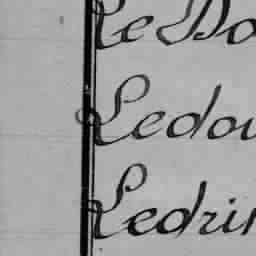 Le Do
Ledou
Ledrin